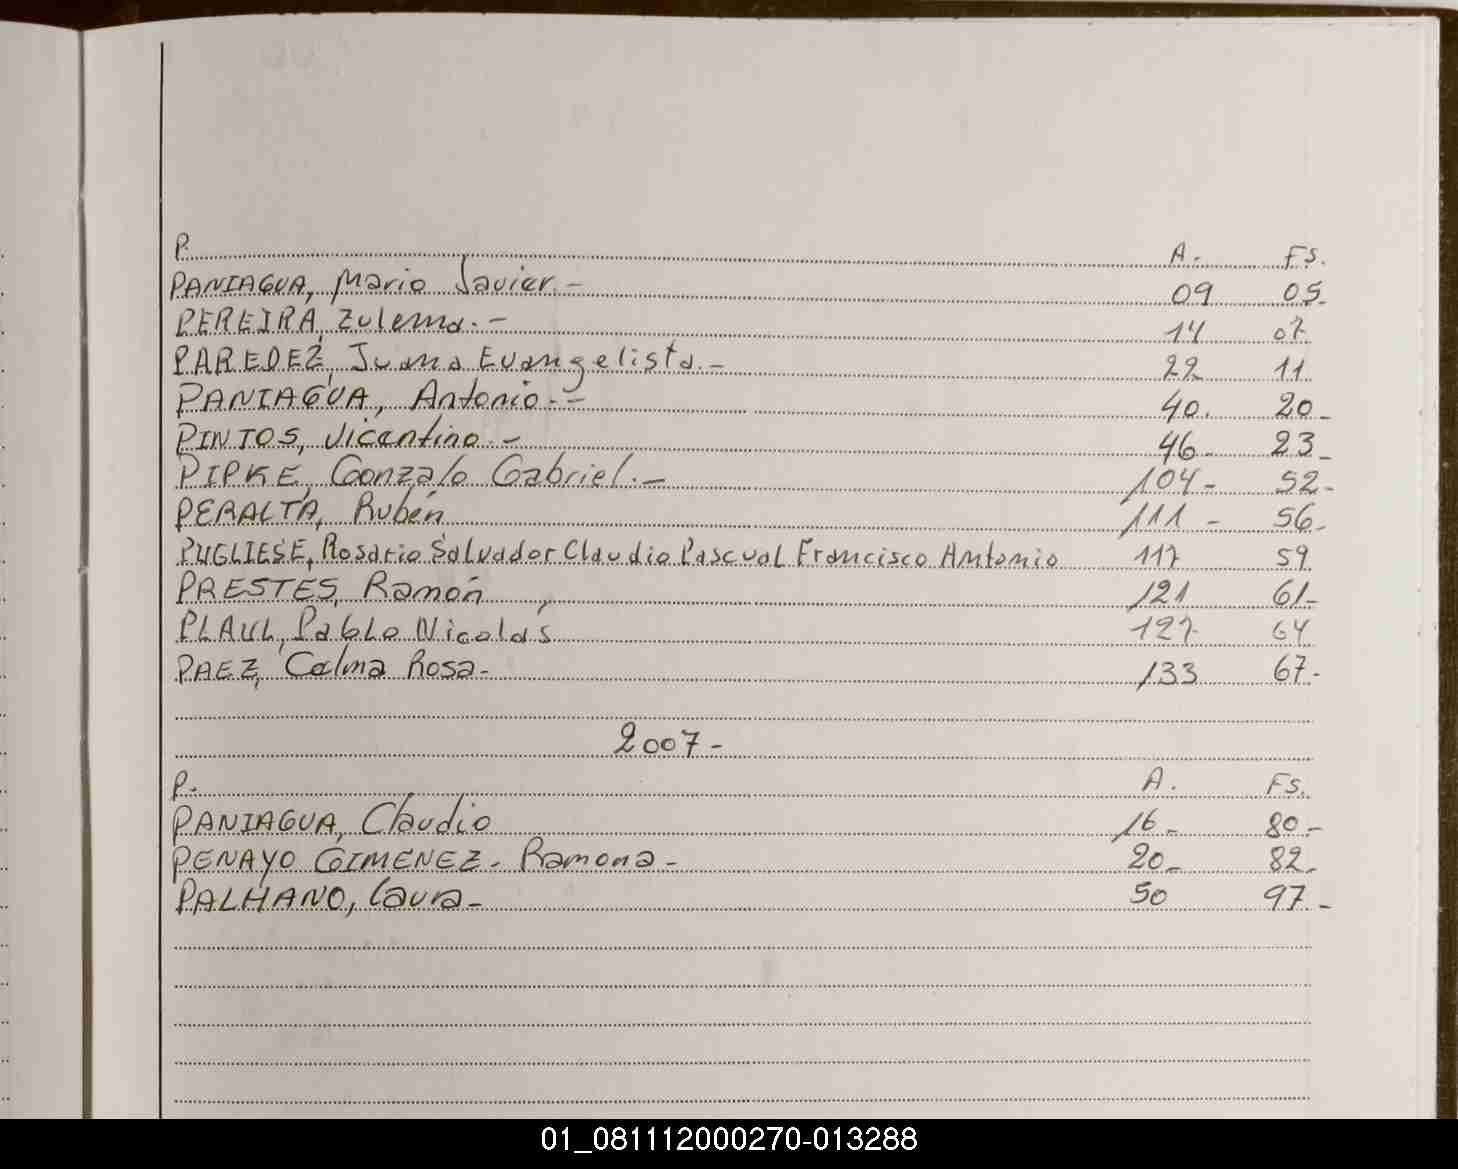 P. A. Fs.
PANIAGUA, Mario Javier.- 09 05-
PEREIRA, Zulema.- 14 07
PAREDEZ, Juana Evangelista.- 22 11
PANIAGUA, Antonio.- 40. 20-
PINTOS, Vicentino.- 46- 23-
PIPKE, Gonzalo Gabriel.- 104- 52-
PERALTA, Rubén 111- 56-
PUGLIESE, Rosario Salvador Claudio Pascual Francisco Antonio 117 59
PRESTES, Ramón 121 61-
PLAUL, Pablo Nicolás 127 64
PAEZ, Celma Rosa- 133 67-
2007-
P. A. Fs.
PANIAGUA, Claudio 16- 80-
PENAYO GIMENEZ- Ramona- 20- 82-
PALHANO, Laura- 50 97-
01_081112000270-013288